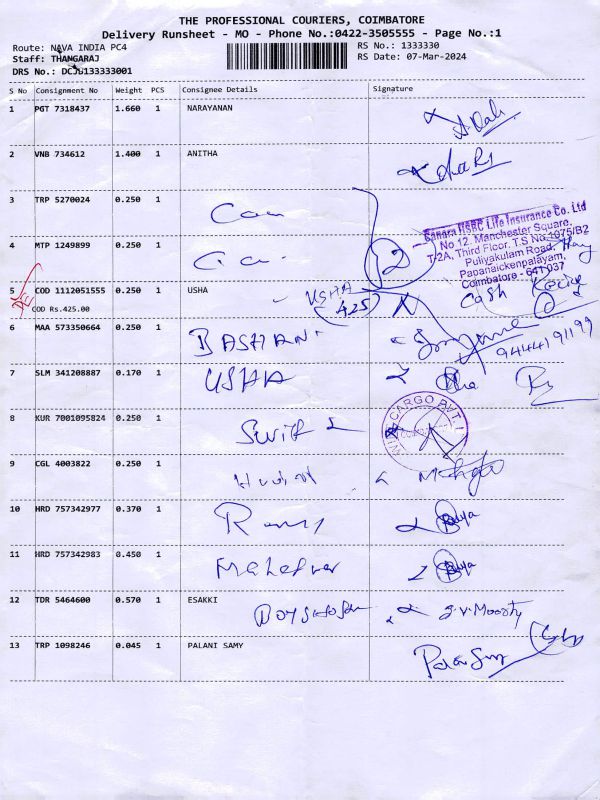 THE PROFESSIONAL COURIERS, COIMBATORE
Delivery Runsheet - MO - Phone No.:0422-3505555 - Page No.:1
Route: NAVA INDIA PC4
RS No.: 1333330
Staff: THANGARAJ
RS Date: 07-Mar-2024
DRS No.: DCJB133333001
S No Consignment No Weight PCS Consignee Details Signature
1 PGT 7318437 1.660 1 NARAYANAN
2 VNB 734612 1.400 1 ANITHA
3 TRP 5270024 0.250 1
Canara HSBC Life Insurance Co. Ltd
No 12, Manchester Square,
T-2A, Third Floor, T.S No.1075/B2
Puliyakulam Road,
Papanaickenpalayam,
Coimbatore - 641 037
4 MTP 1249899 0.250 1 2
5 COD 1112051555 0.250 1 USHA USHA Cash
COD Rs.425.00 425
6 MAA 573350664 0.250 1 BASHAN
9444191199
7 SLM 341208887 0.170 1 USHA
8 KUR 7001095824 0.250 1 Swift CARGO PVT.
9 CGL 4003822 0.250 1
10 HRD 757342977 0.370 1
11 HRD 757342983 0.450 1
12 TDR 5464600 0.570 1 ESAKKI S.V.Moorty
13 TRP 1098246 0.045 1 PALANI SAMY